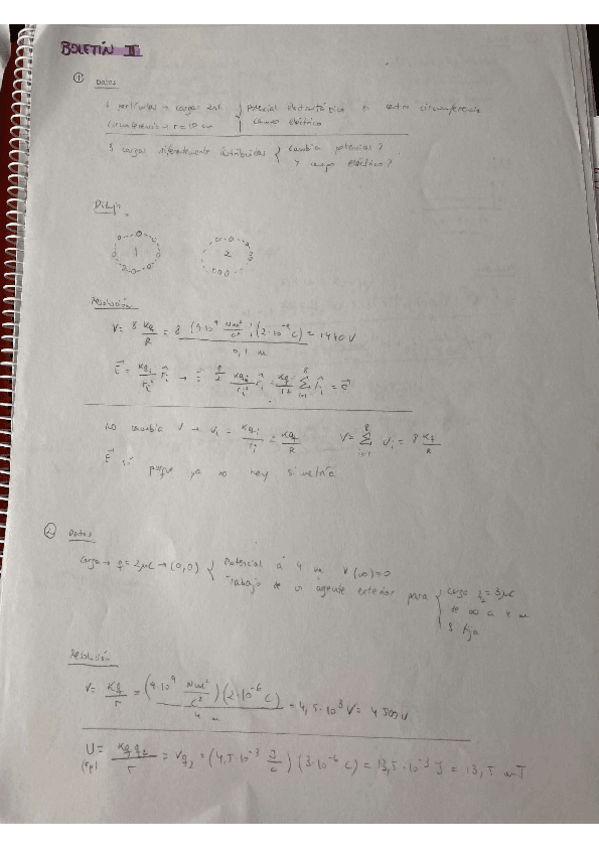 BOLETÍN II
① Datos
8 partículas → cargas 2nC { potencial electrostático en centro circunferencia
circunferencia → r = 10 cm { campo eléctrico
8 cargas diferentemente distribuidas { cambia potencial?
y campo eléctrico?
Dibujo
1 2
Resolución
V = 8 Kq/R = 8 (9·10⁹ Nm²/C²)(2·10⁻⁹ C) / 0,1 m = 1440 V
No cambia V → Vi = Kqi/ri = Kq/R V = Σ Vi = 8 Kq/R
E⃗ sí porque ya no hay simetría
② Datos
carga → q = 2μC → (0,0) { Potencial a 4 m V(∞)=0
Trabajo de un agente exterior para { carga q₂ = 3μC
de ∞ a 4 m
q fija
Resolución
V = Kq/r = (9·10⁹ Nm²/C²)(2·10⁻⁶ C) / 4 m = 4,5·10³ V = 4500 V
U = Kq q₂/r = Vq₂ = (4,5·10⁻³ J/C)(3·10⁻⁶ C) = 13,5·10⁻³ J = 13,5 mJ
(Ep)